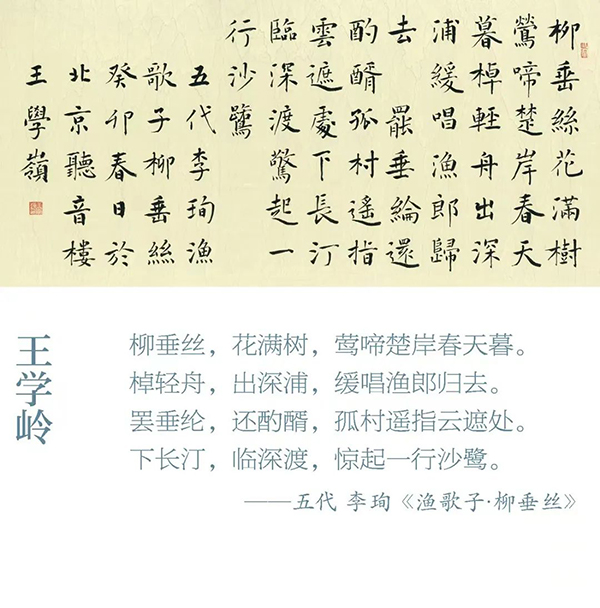 柳垂絲花滿樹
鶯啼楚岸春天
暮棹輕舟出深
浦緩唱漁郎歸
去 罷垂綸還
酌醑孤村遙指
雲遮處下長汀
臨深渡驚起一
行沙鷺
五代李珣漁
歌子柳垂絲
癸卯春日於
北京聽音樓
王學嶺
王学岭
柳垂丝，花满树，莺啼楚岸春天暮。
棹轻舟，出深浦，缓唱渔郎归去。
罢垂纶，还酌醑，孤村遥指云遮处。
下长汀，临深渡，惊起一行沙鹭。
——五代 李珣《渔歌子·柳垂丝》